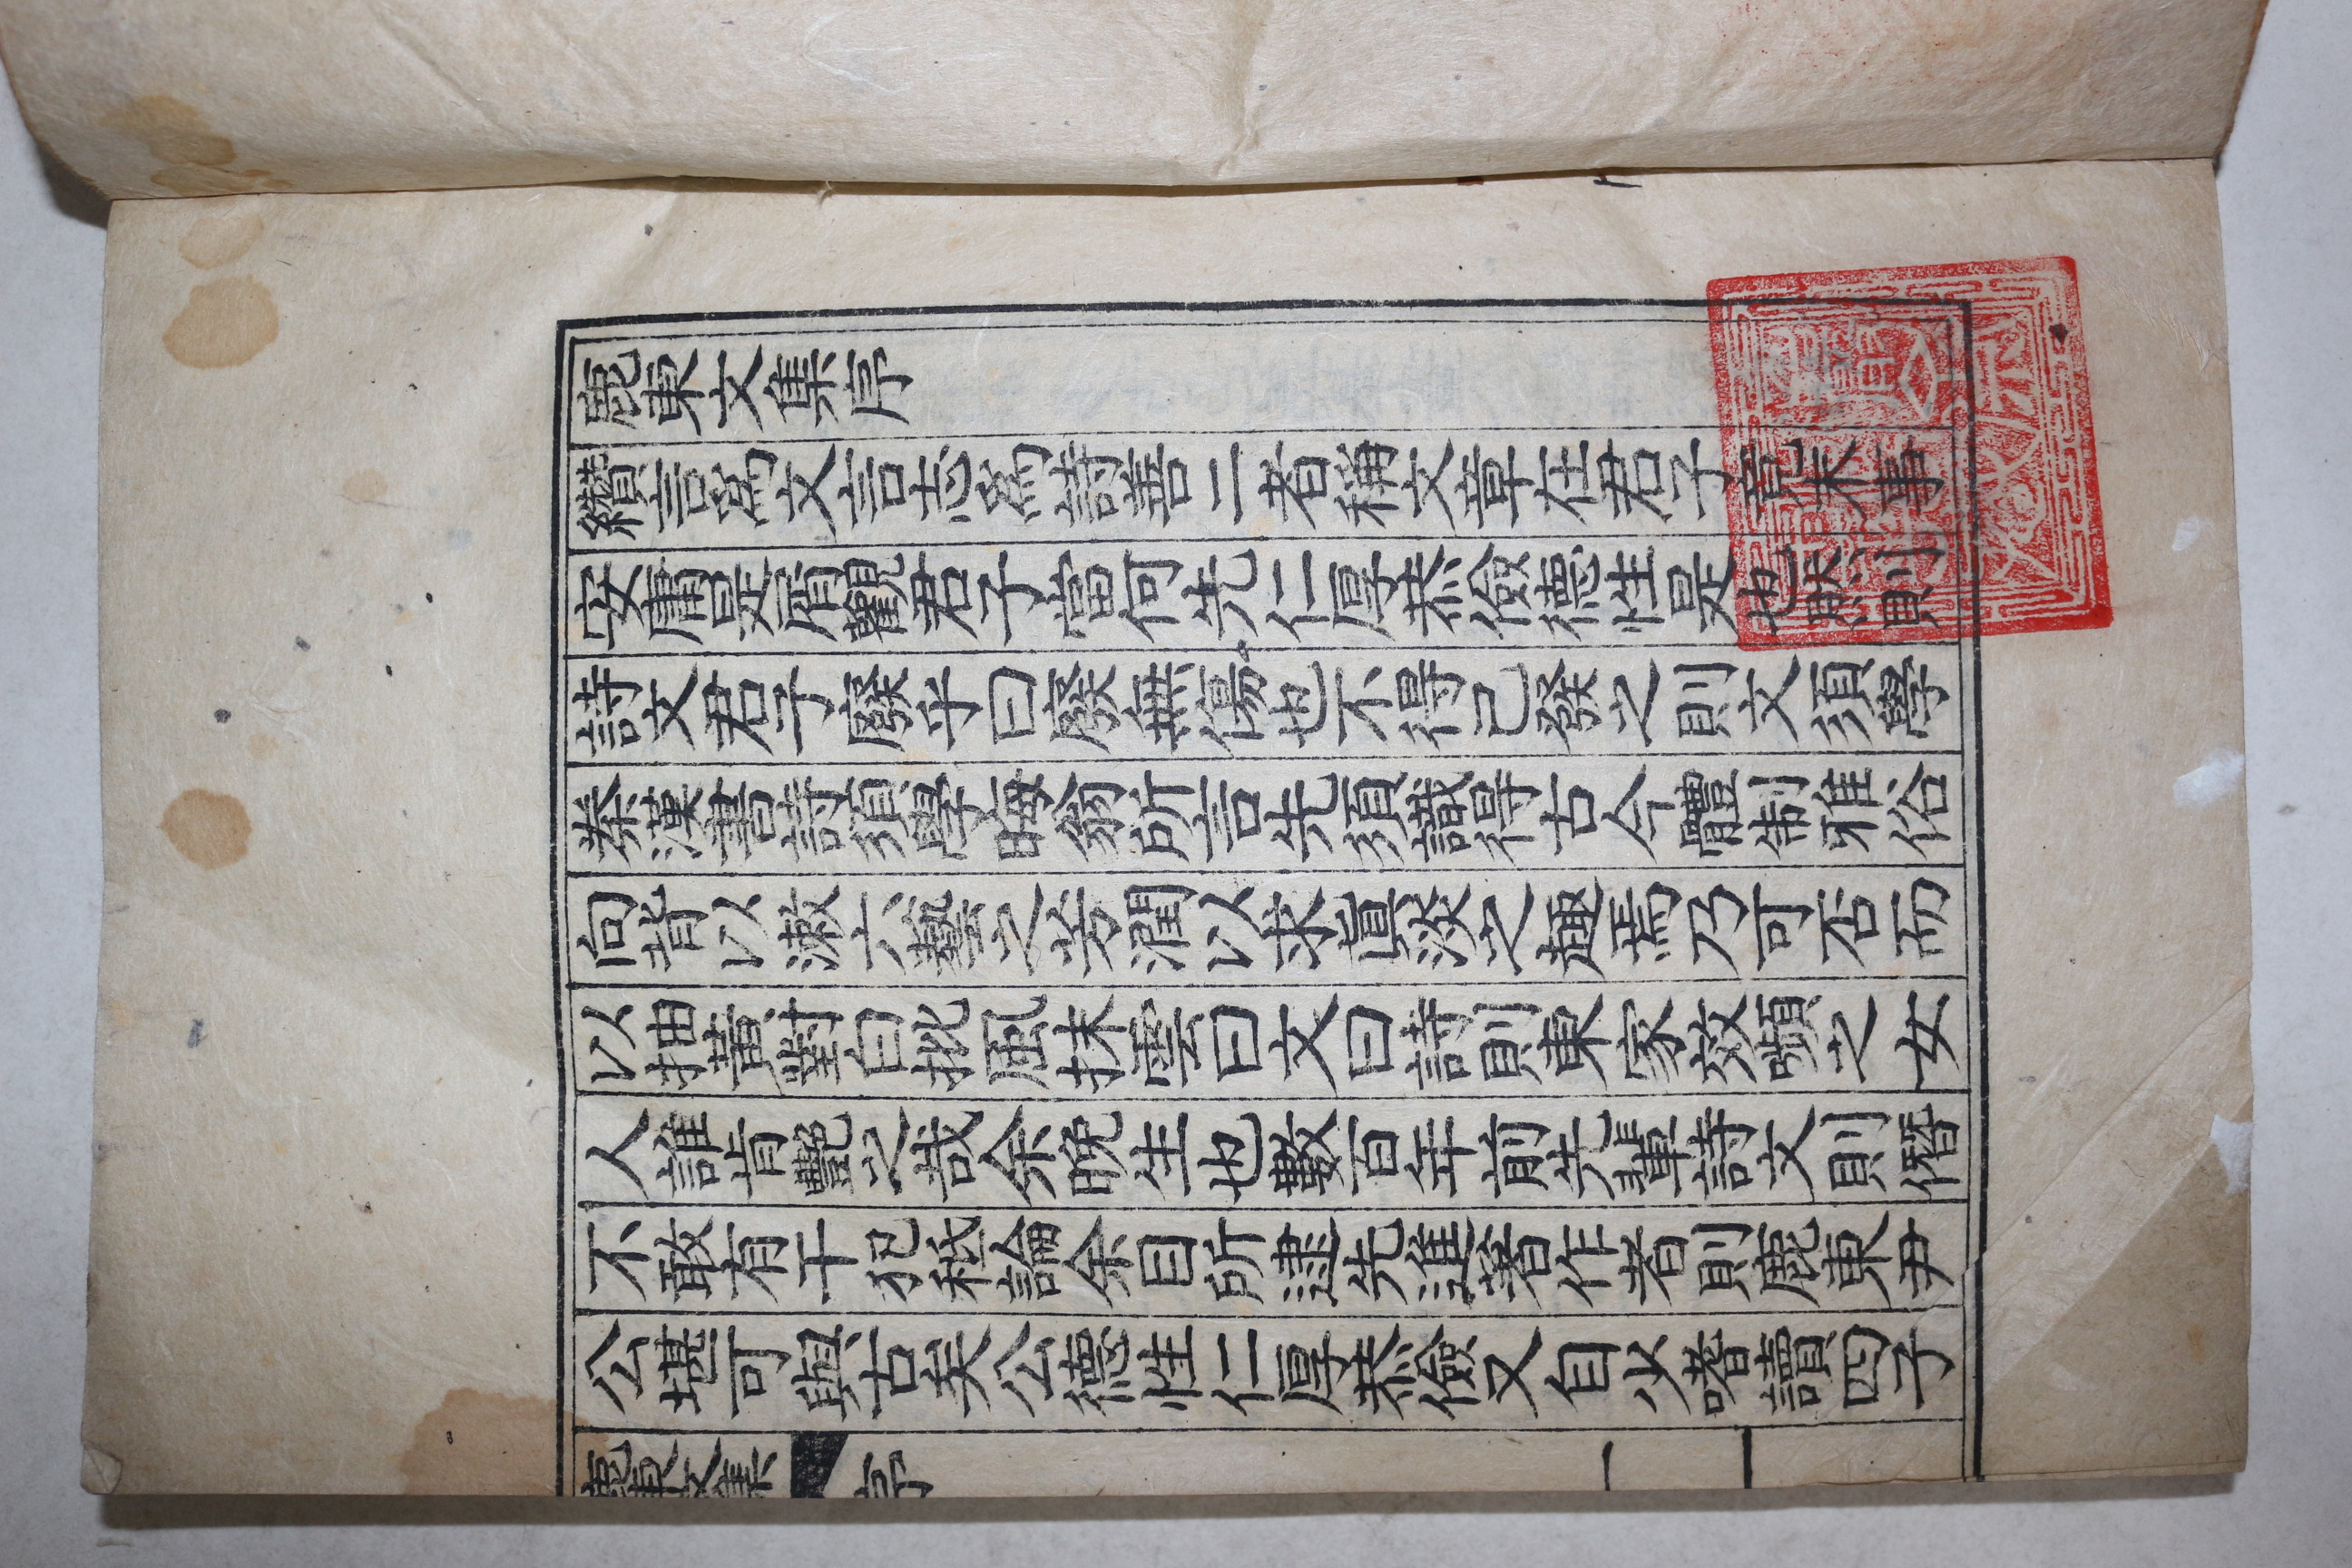 鹿東文集序
纘言爲文言志爲詩善二者稱文章在君子竟末事
安庸是屑觀君子當何先仁厚恭儉德性是也然則
詩文君子廢乎曰廢無傷也不得已發之則文須學
秦漢書詩須學晦翁所言先須識得古今體制雅俗
向背以漱六藝之芳潤以求眞淡之趣焉乃可否而
以抽黃對白批風抹雲曰文曰詩則東家效嚬之女
人誰肯艶之哉余晚生也數百年前先輩詩文則僭
不敢有干犯論余目所逮先進著作者則鹿東尹
公堪可與古矣公德性仁厚恭儉又自少嗜讀四子
鹿東文集 序 一